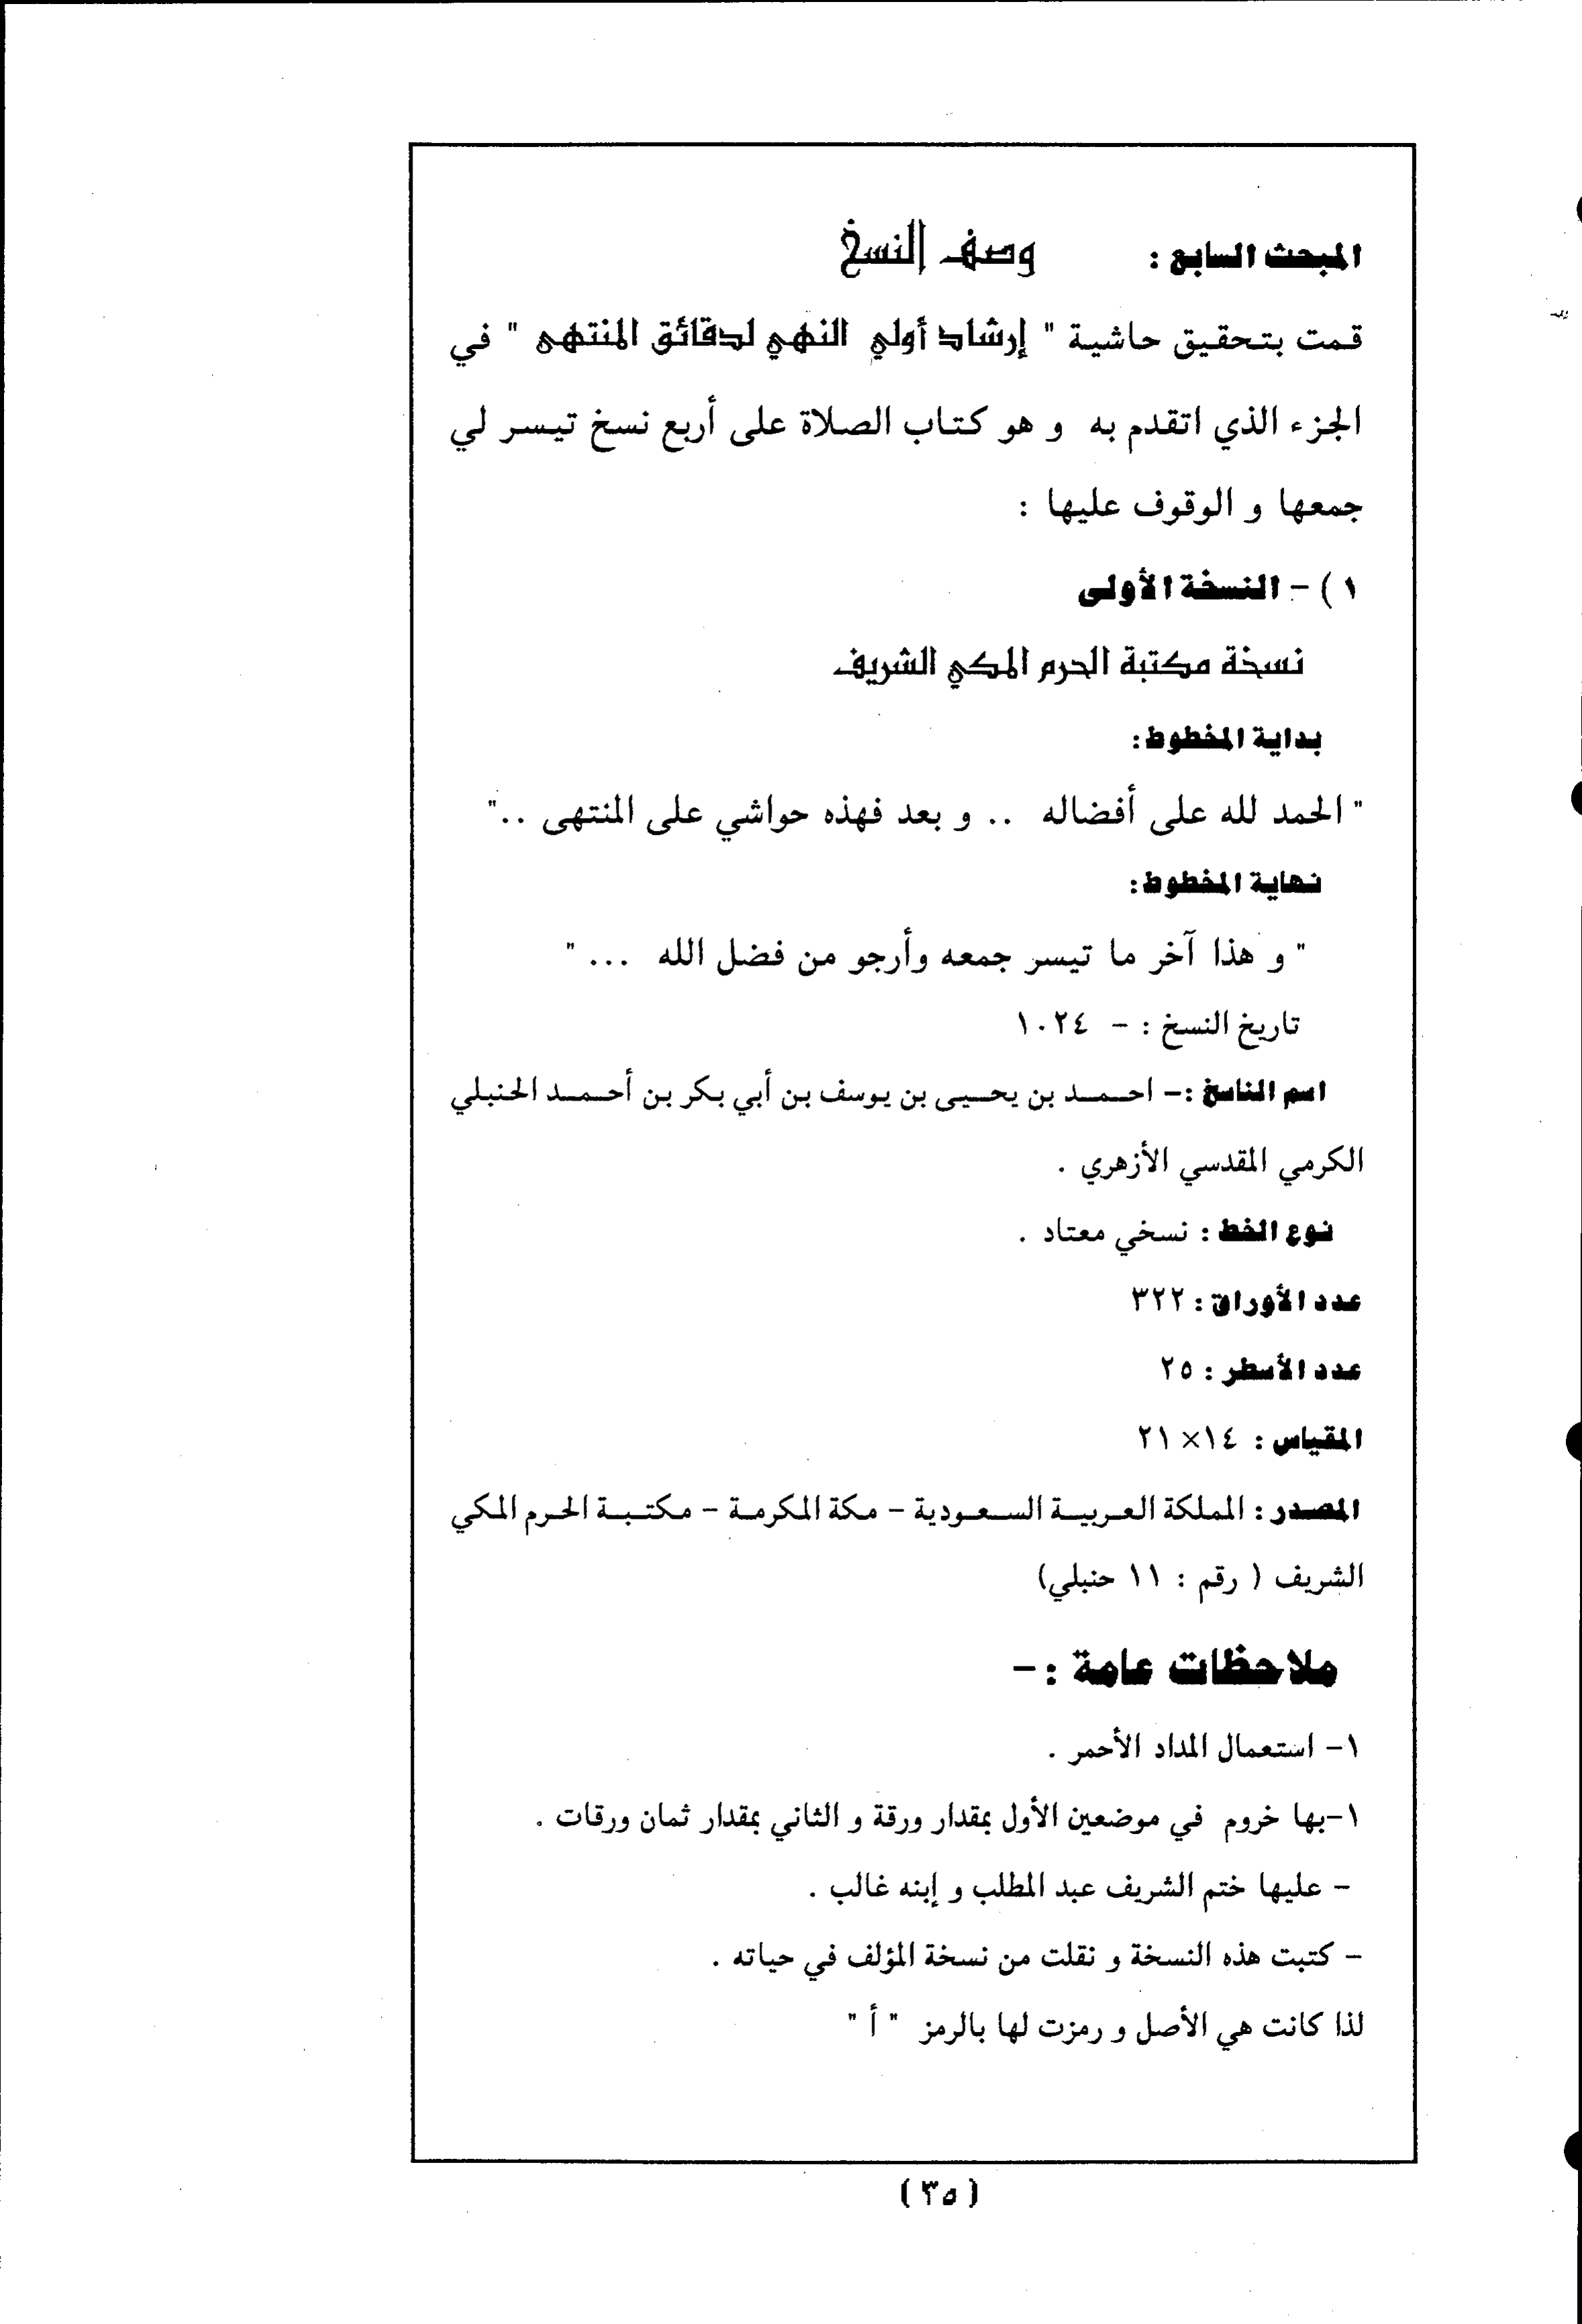 المبحث السابع : وصف النسخ
قمت بتحقيق حاشية " إرشاد أولي النهي لدقائق المنتهى " في
الجزء الذي اتقدم به و هو كتاب الصلاة على أربع نسخ تيسر لي
جمعها و الوقوف عليها :
١ ) - النسخة الأولى
نسخة مكتبة الحرم المكي الشريف
بداية المخطوط:
" الحمد لله على أفضاله .. و بعد فهذه حواشي على المنتهى .."
نهاية المخطوط:
" و هذا آخر ما تيسر جمعه وأرجو من فضل الله ... "
تاريخ النسخ : - ١٠٢٤
اسم الناسخ :- احمد بن يحيى بن يوسف بن أبي بكر بن أحمد الحنبلي
الكرمي المقدسي الأزهري .
نوع الخط : نسخي معتاد .
عدد الأوراق : ٣٢٢
عدد الأسطر : ٢٥
المقياس : ١٤× ٢١
المصدر : المملكة العربية السعودية - مكة المكرمة - مكتبة الحرم المكي
الشريف ( رقم : ١١ حنبلي)
ملاحظات عامة :-
١- استعمال المداد الأحمر .
١-بها خروم في موضعين الأول بمقدار ورقة و الثاني بمقدار ثمان ورقات .
- عليها ختم الشريف عبد المطلب و إبنه غالب .
- كتبت هذه النسخة و نقلت من نسخة المؤلف في حياته .
لذا كانت هي الأصل و رمزت لها بالرمز " أ "
(٣٥)